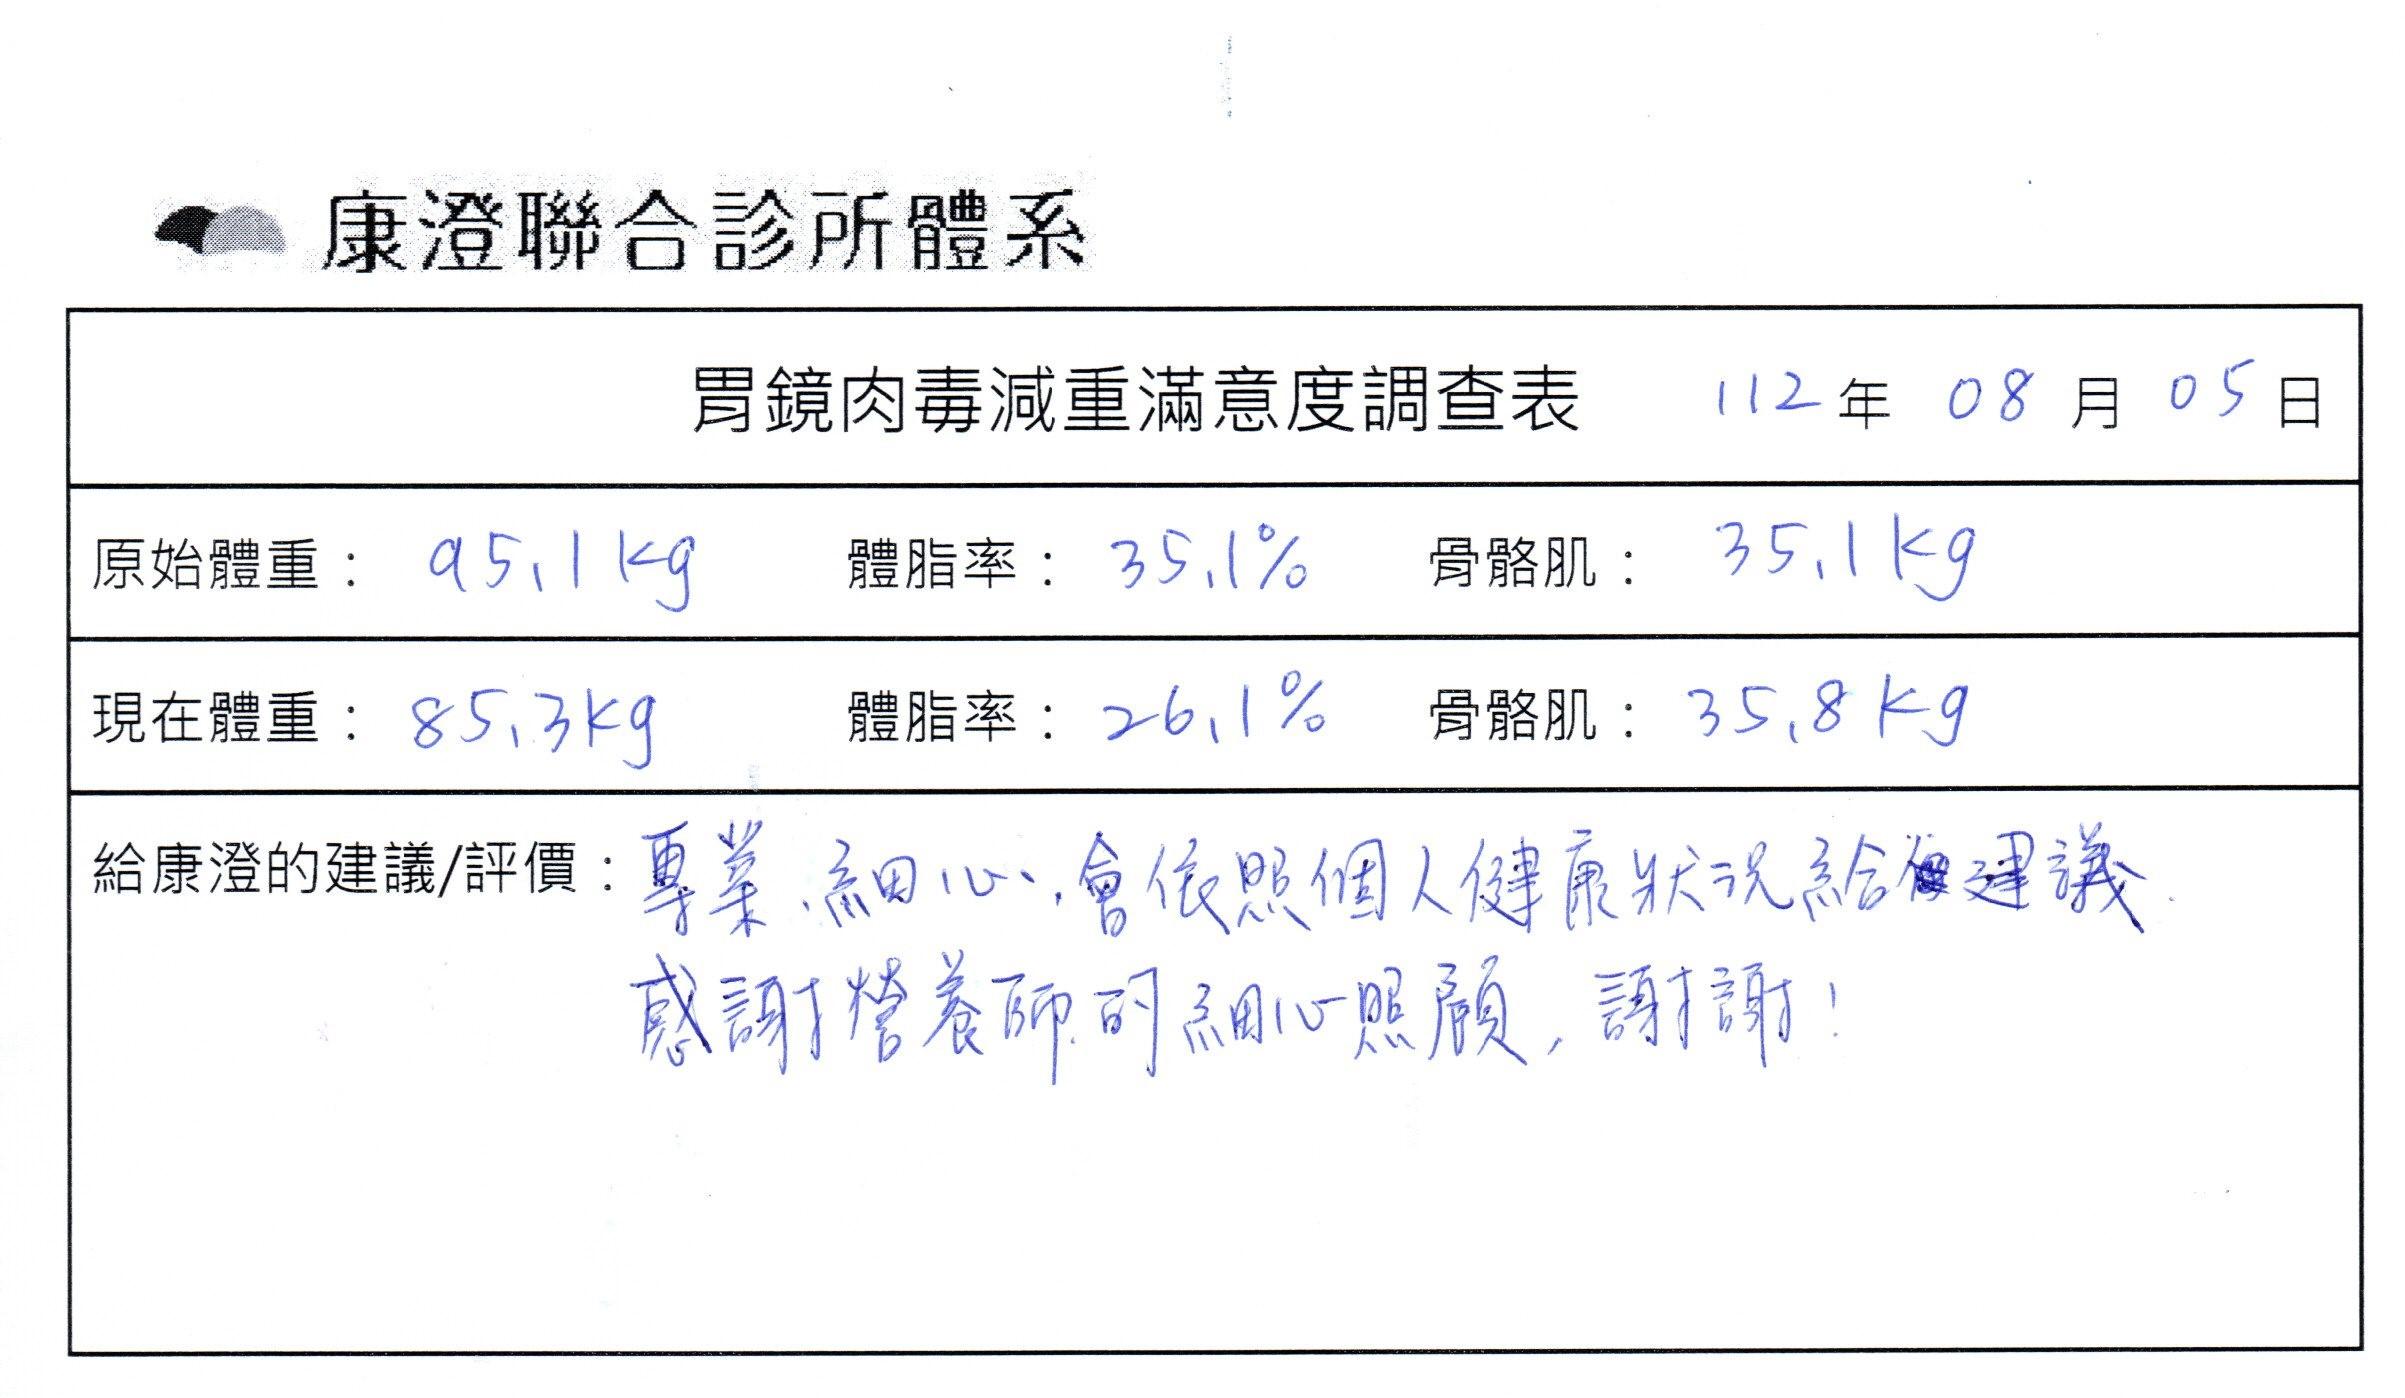 康澄聯合診所體系
胃鏡肉毒減重滿意度調查表 112年 08月 05日
原始體重： 95.1kg 體脂率： 35.1% 骨骼肌： 35.1kg
現在體重： 85.3kg 體脂率： 26.1% 骨骼肌： 35.8kg
給康澄的建議/評價：專業、細心，會依照個人健康狀況給建議.
感謝營養師的細心照顧，謝謝！